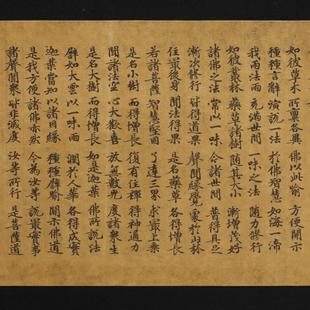 如彼草木 所稟各異 佛以此喻 方便開示
種種言辭 演說一法 於佛智慧 如海一渧
我雨法雨 充滿世間 一味之法 隨力修行
如彼叢林 藥草諸樹 隨其大小 漸增茂好
諸佛之法 常以一味 令諸世間 普得具足
漸次修行 皆得道果 聲聞緣覺 處於山林
住最後身 聞法得果 是名藥草 各得增長
若諸菩薩 智慧堅固 了達三界 求最上乘
是名小樹 而得增長 復有住禪 得神通力
聞諸法空 心大歡喜 放無數光 度諸衆生
是名大樹 而得增長 如是迦葉 佛所說法
譬如大雲 以一味雨 潤於人華 各得成實
迦葉當知 以諸因緣 種種譬喻 開示佛道
是我方便 諸佛亦然 今為汝等 說最實事
諸聲聞衆 皆非滅度 汝等所行 是菩薩道